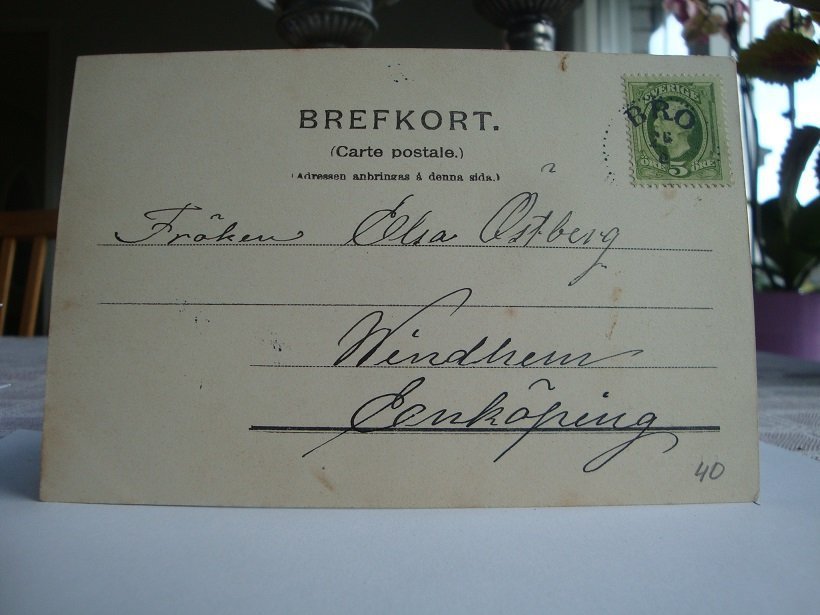 BREFKORT.
(Carte postale.)
(Adressen anbringas å denna sida.)
SVERIGE
BRO
5
ÖRE
Fröken Elsa Östberg
Windhem
Enköping
40